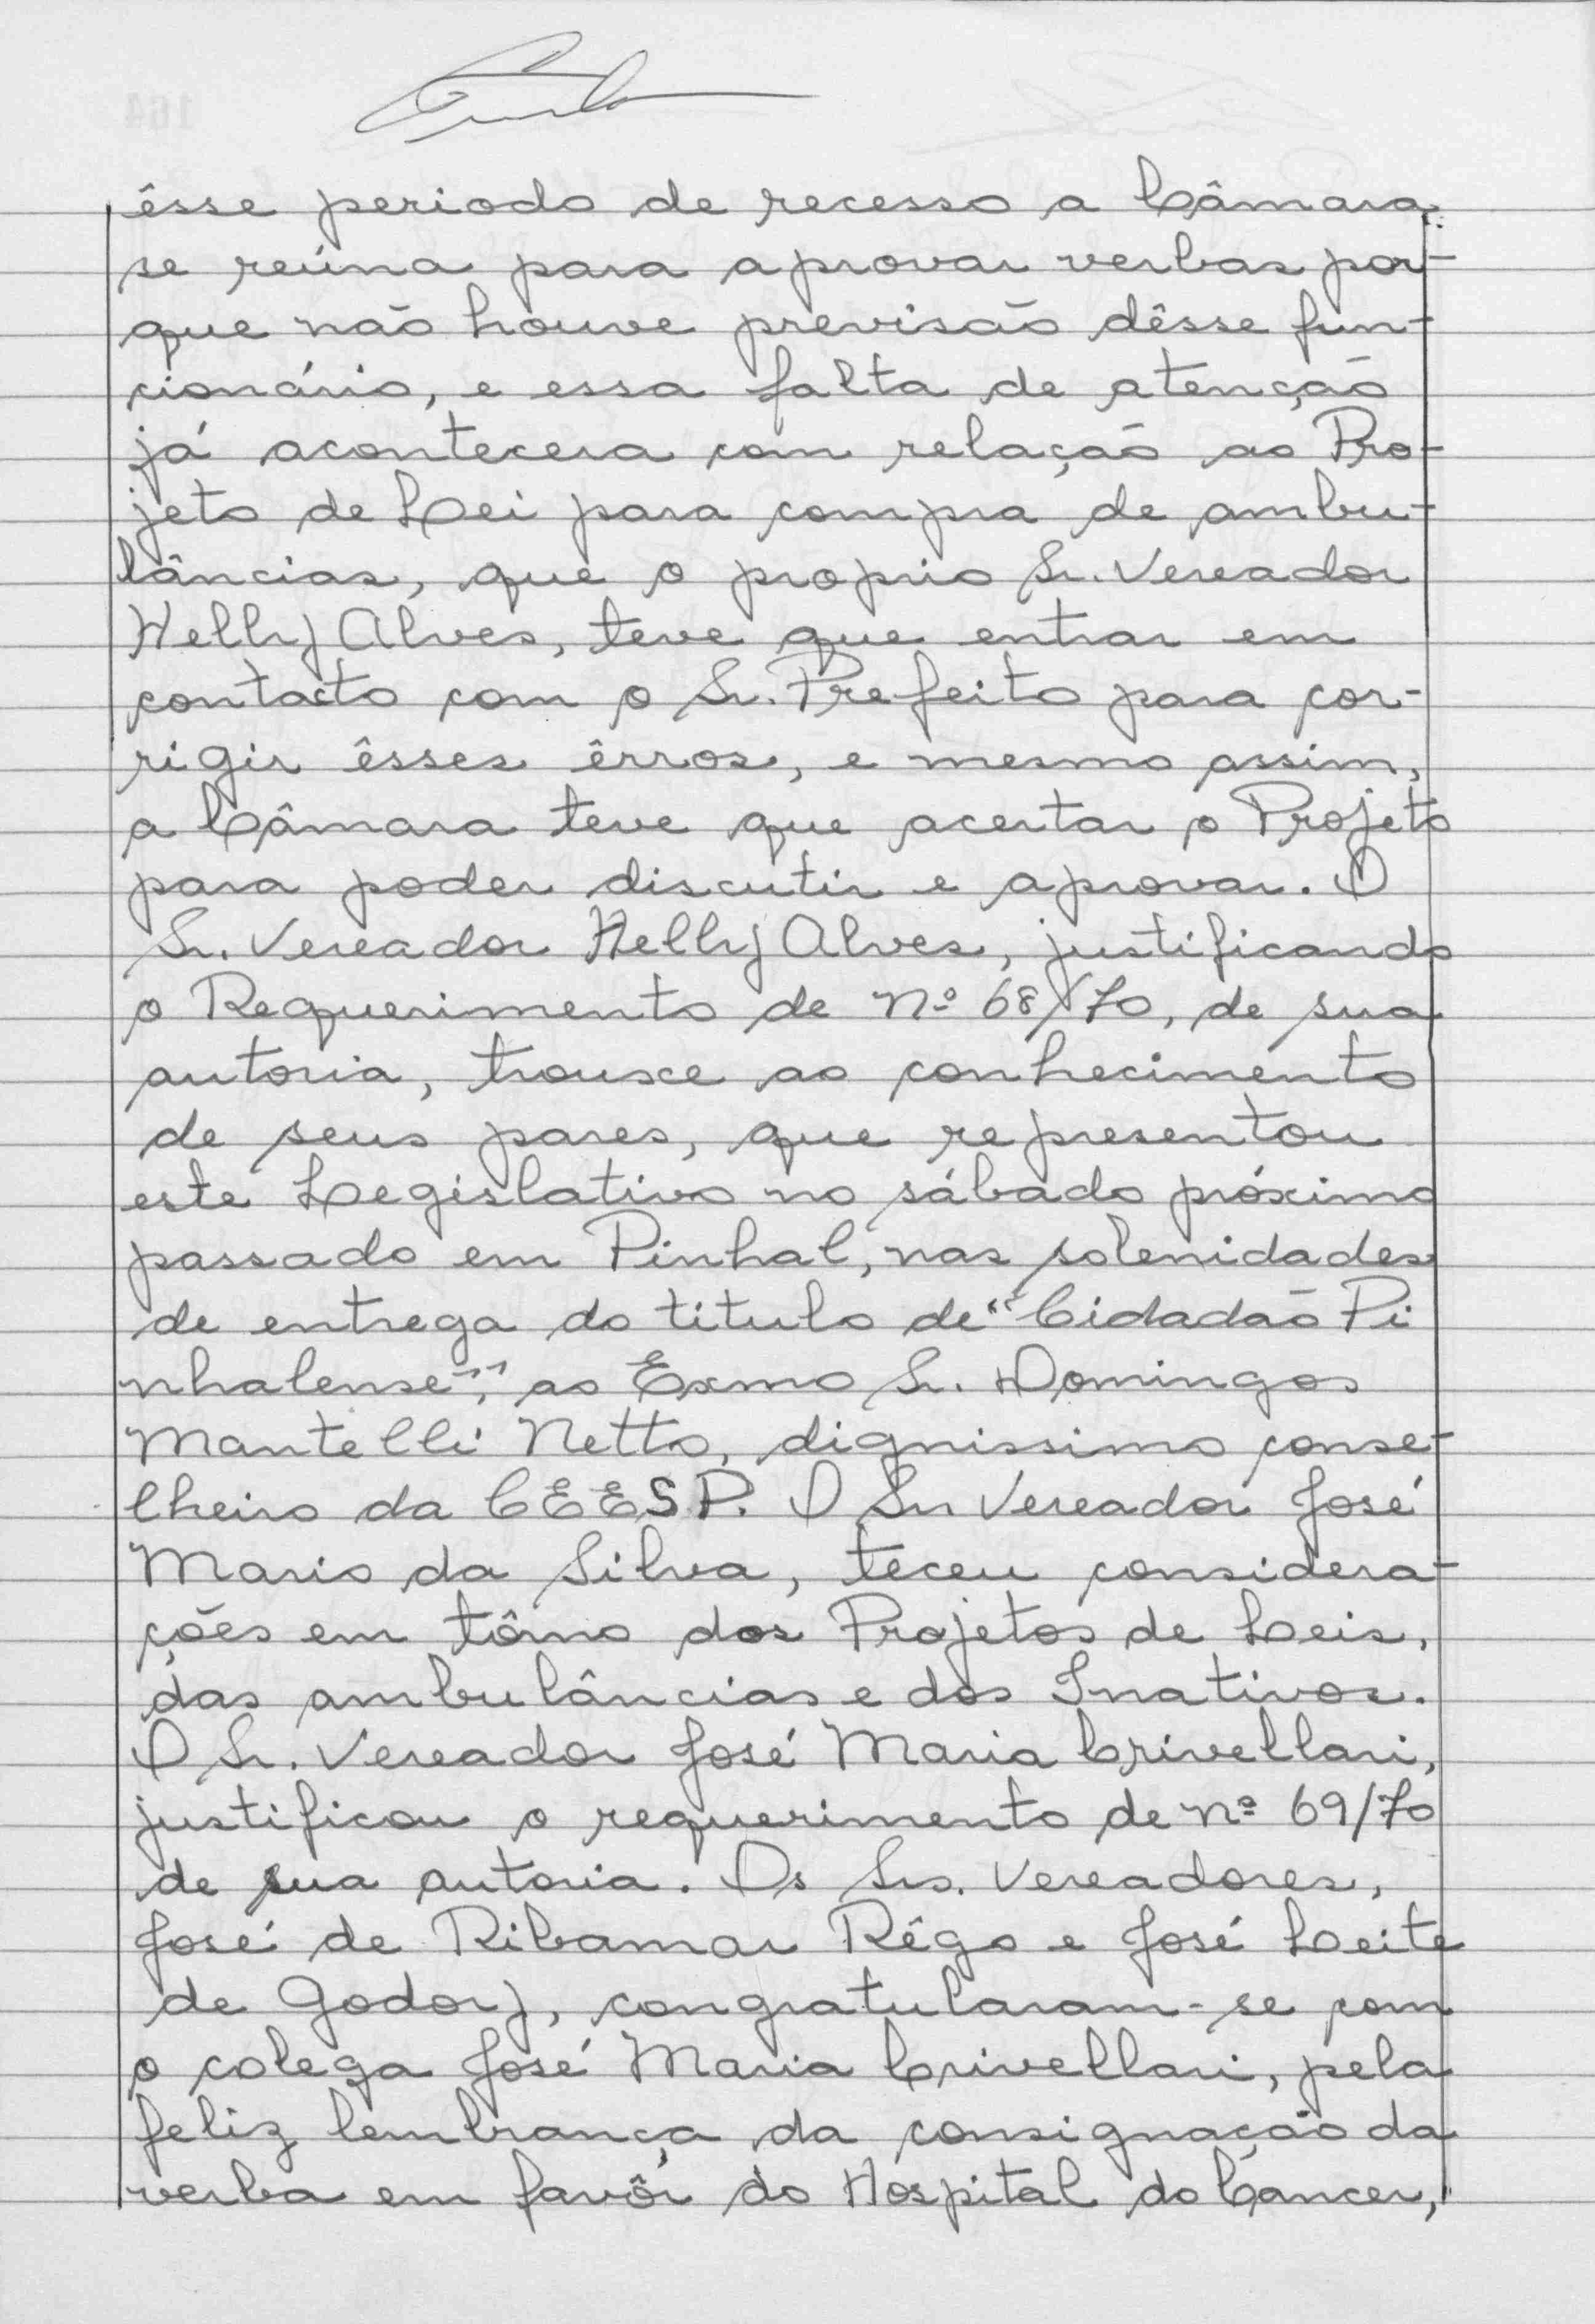 êsse periodo de recesso a Câmara
se reúna para aprovar verbas por-
que não houve previsão dêsse fun-
cionário, e essa falta de atenção
já acontecera com relação ao Pro-
jeto de Lei para compra de ambu-
lâncias, que o proprio Sr. Vereador
Helly Alves, teve que entrar em
contacto com o Sr. Prefeito para cor-
rigir êsses êrros, e mesmo assim,
a Câmara teve que acertar o Projeto
para poder discutir e aprovar. O
Sr. Vereador Helly Alves, justificando
o Requerimento de nº 68/70, de sua
autoria, trouxe ao conhecimento
de seus pares, que representou
este Legislativo no sábado próximo
passado em Pinhal, nas solenidades
de entrega do titulo de "Cidadão Pi
nhalense", ao Exmo Sr. Domingos
Mantelli Netto, dignissimo conse-
lheiro da CEESP. O Sr. Vereador José
Mario da Silva, teceu considera-
ções em tôrno dos Projetos de Leis,
das ambulâncias e dos Inativos.
O Sr. Vereador José Maria Crivellari,
justificou o requerimento de nº 69/70
de sua autoria. Os Srs. Vereadores,
José de Ribamar Rêgo e José Leite
de Godoy, congratularam-se com
o colega José Maria Crivellari, pela
feliz lembrança da consignação da
verba em favôr do Hospital do Câncer,